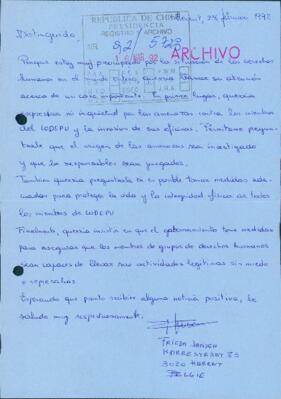 Herent, 28 février 1992
REPUBLICA DE CHILE
PRESIDENCIA
REGISTRO Y ARCHIVO
NR.
92/
ARCHIVO
MAR. 92
Distinguido,
Porque estoy muy preocupada por la situacion de los derechos
humanos en el mundo entero, quisiera llamar su atención
acerca de un caso importante. En primer lugar, quisiera
expresar mi inquietud por las amenazas contra los miembros
del CODEPU y la invasion de sus oficinas. Permitame pregun-
tarle que el origen de las amenazas sea investigado
y que los responsables sean juzgados.
Tambien querria preguntarle si es posible tomar medidas ade-
cuadas para proteger la vida y la integridad fisica de todos
los miembros de CODEPU
Finalmente, querria insistir en que el gobernamiento tome medidas
para asegurar que los miembros de grupos de derechos humanos
sean capaces de llevar sus actividades legitimas sin miedo
a represalias.
Esperando que pronto recibir alguna noticia positiva, le
saludo muy respetuosamente.
FRIEDA JANSEN
3020 HERENT
BELGIE